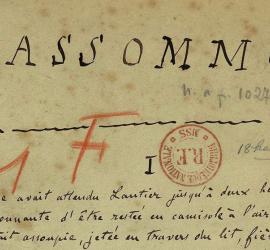 ASSOMM
n. a. f. 102
1 F
I
BIBLIOTHEQUE NATIONALE MSS R.F.
avait attendu Lantier jusqu'à deux he
onnante d'être restée en camisole à l'air
ait assoupie, jetée en travers du lit, fié